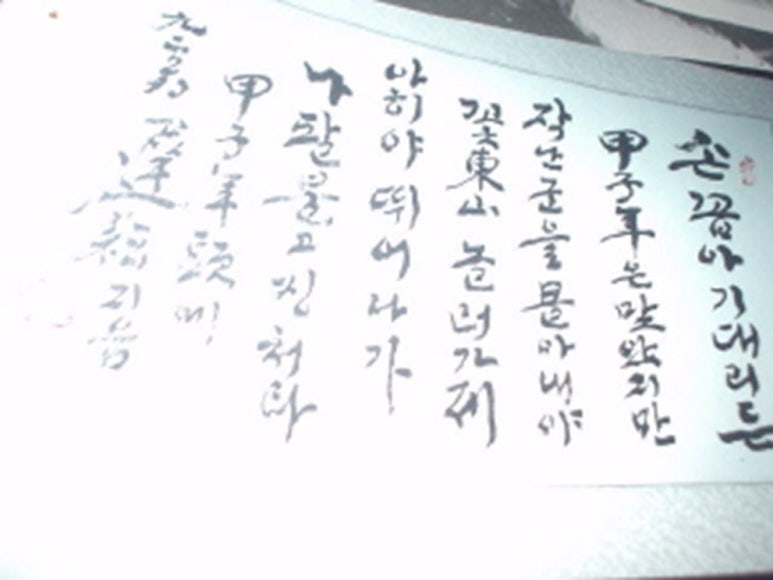 손꼽아 기대리든
甲子年은 맞았지만
작난군을 몰아내야
꽃東山 놀러가제
아히야 뛰어나가
나팔불고 징처라
甲子年 頭에
지음